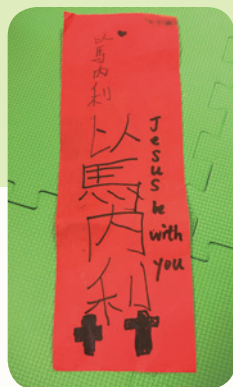 以馬內利
以馬內利
Jesus be with you